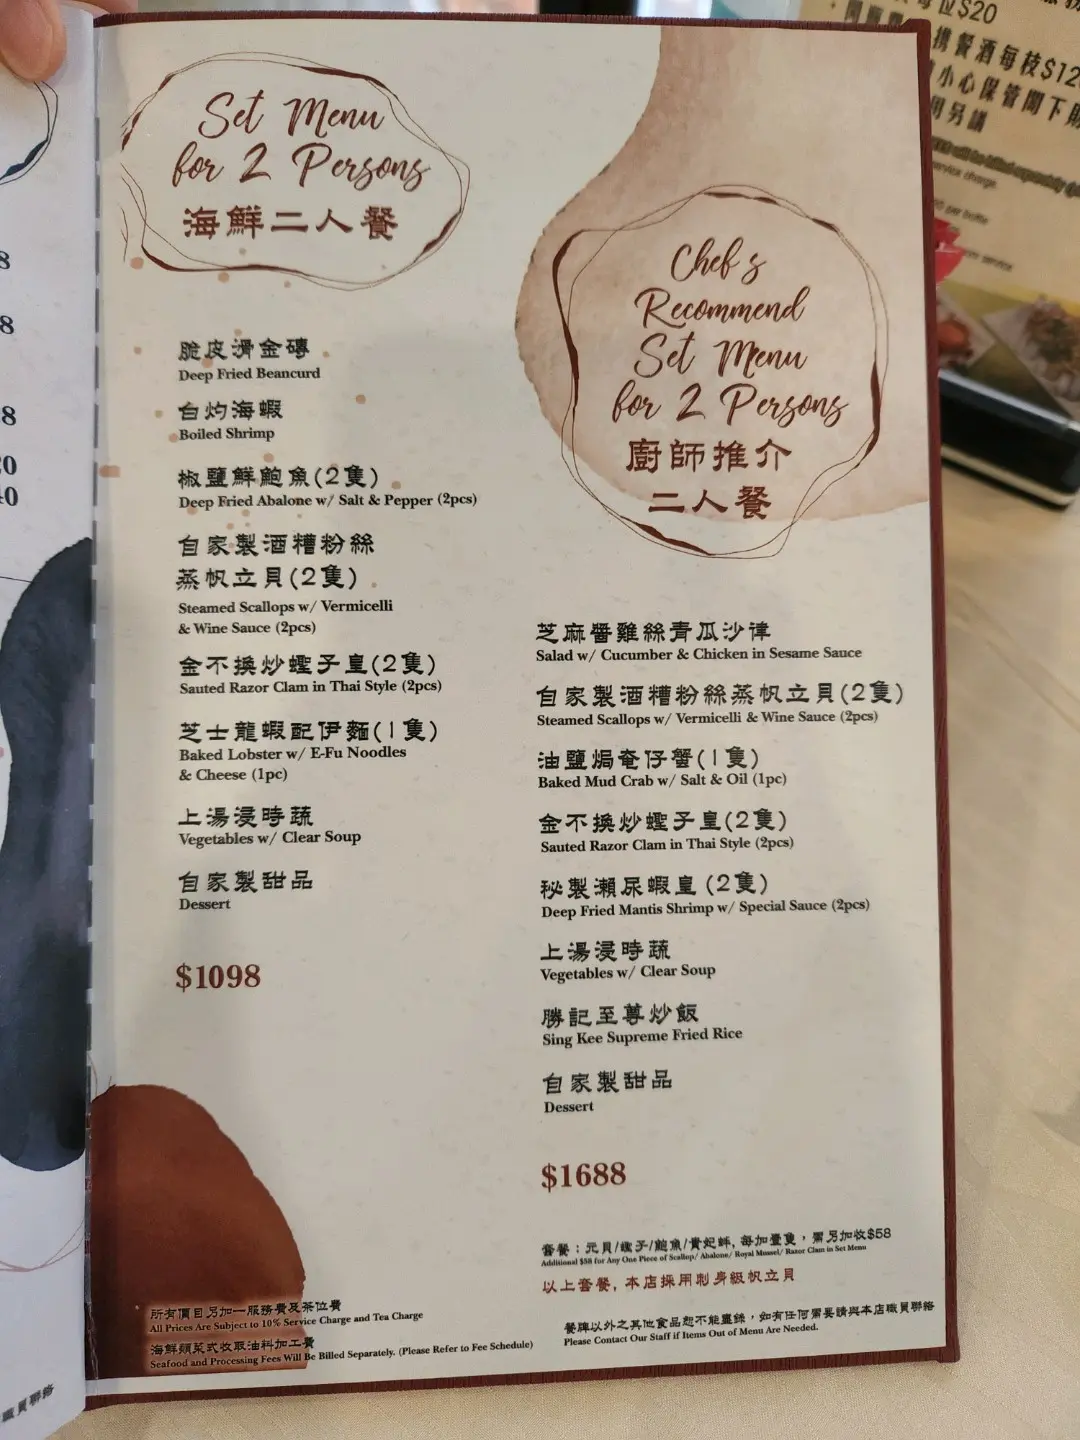 Set Menu
for 2 Persons
海鮮二人餐
脆皮滑金磚
Deep Fried Beancurd
白灼海蝦
Boiled Shrimp
椒鹽鮮鮑魚(2隻)
Deep Fried Abalone w/ Salt & Pepper (2pcs)
自家製酒糟粉絲
蒸帆立貝(2隻)
Steamed Scallops w/ Vermicelli
& Wine Sauce (2pcs)
金不換炒蟶子皇(2隻)
Sauted Razor Clam in Thai Style (2pcs)
芝士龍蝦配伊麵(1隻)
Baked Lobster w/ E-Fu Noodles
& Cheese (1pc)
上湯浸時蔬
Vegetables w/ Clear Soup
自家製甜品
Dessert
$1098
Chef's
Recommend
Set Menu
for 2 Persons
廚師推介
二人餐
芝麻醬雞絲青瓜沙律
Salad w/ Cucumber & Chicken in Sesame Sauce
自家製酒糟粉絲蒸帆立貝(2隻)
Steamed Scallops w/ Vermicelli & Wine Sauce (2pcs)
油鹽焗奄仔蟹(1隻)
Baked Mud Crab w/ Salt & Oil (1pc)
金不換炒蟶子皇(2隻)
Sauted Razor Clam in Thai Style (2pcs)
秘製瀨尿蝦皇 (2隻)
Deep Fried Mantis Shrimp w/ Special Sauce (2pcs)
上湯浸時蔬
Vegetables w/ Clear Soup
勝記至尊炒飯
Sing Kee Supreme Fried Rice
自家製甜品
Dessert
$1688
套餐：元貝/蟶子/鮑魚/貴妃蚌, 每加壹隻，需另加收$58
Additional $58 for Any One Piece of Scallop/ Abalone/ Royal Mussel/ Razor Clam in Set Menu
以上套餐, 本店採用刺身級帆立貝
所有價目另加一服務費及茶位費
All Prices Are Subject to 10% Service Charge and Tea Charge
海鮮類菜式收取油料加工費
Seafood and Processing Fees Will Be Billed Separately. (Please Refer to Fee Schedule)
餐牌以外之其他食品恕不能盡錄，如有任何需要請與本店職員聯絡
Please Contact Our Staff if Items Out of Menu Are Needed.
每位$20
攜餐酒每枝$12
小心保管閣下財
用另議
service charge.
per bottle
service
職員聯絡